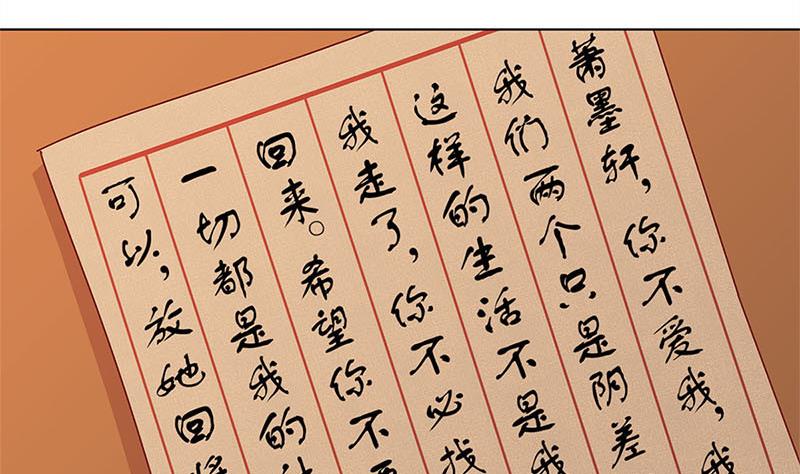 萧墨轩，你不爱我，我
我们两个只是阴差
这样的生活不是我
我走了，你不必找
回来。希望你不要
一切都是我的
可以，放她回将